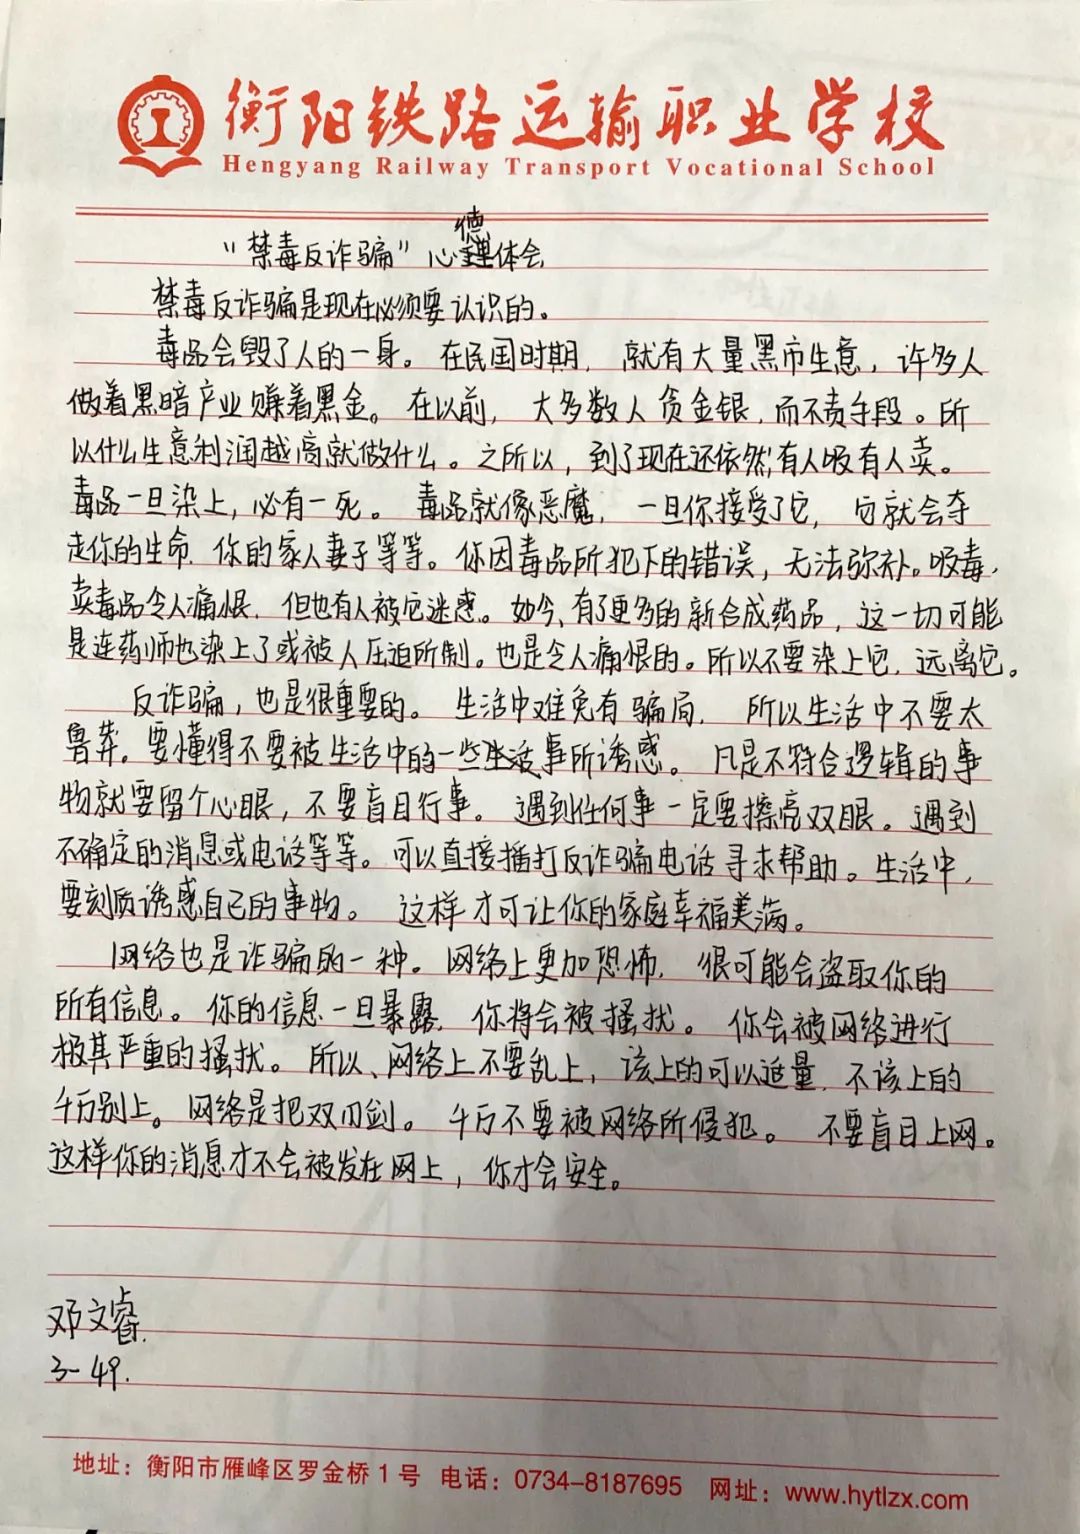 衡阳铁路运输职业学校
Hengyang Railway Transport Vocational School
德
“禁毒反诈骗”心理体会
禁毒反诈骗是现在必须要认识的。
毒品会毁了人的一身。在民国时期,就有大量黑市生意,许多人
做着黑暗产业赚着黑金。在以前,大多数人贪金银,而不责手段。所
以什么生意利润越高就做什么。之所以,到了现在还依然有人吸有人卖。
毒品一旦染上,必有一死。毒品就像恶魔,一旦你接受了它,它就会夺
走你的生命,你的家人妻子等等。你因毒品所犯下的错误,无法弥补。吸毒,
卖毒品令人痛恨,但也有人被它迷惑。如今,有了更多的新合成药品,这一切可能
是连药师也染上了或被人压迫所制。也是令人痛恨的。所以不要染上它,远离它。
反诈骗,也是很重要的。生活中难免有骗局,所以生活中不要太
鲁莽。要懂得不要被生活中的一些事所诱惑。凡是不符合逻辑的事
物就要留个心眼,不要盲目行事。遇到任何事一定要擦亮双眼。遇到
不确定的消息或电话等等。可以直接播打反诈骗电话寻求帮助。生活中,
要刻质诱惑自己的事物。这样才可让你的家庭幸福美满。
网络也是诈骗的一种。网络上更加恐怖,很可能会盗取你的
所有信息。你的信息一旦暴露,你将会被骚扰。你会被网络进行
极其严重的骚扰。所以、网络上不要乱上,该上的可以适量,不该上的
千万别上。网络是把双刃剑。千万不要被网络所侵犯。不要盲目上网。
这样你的消息才不会被发在网上,你才会安全。
邓文睿.
3-49.
地址:衡阳市雁峰区罗金桥1号 电话:0734-8187695 网址:www.hytlzx.com